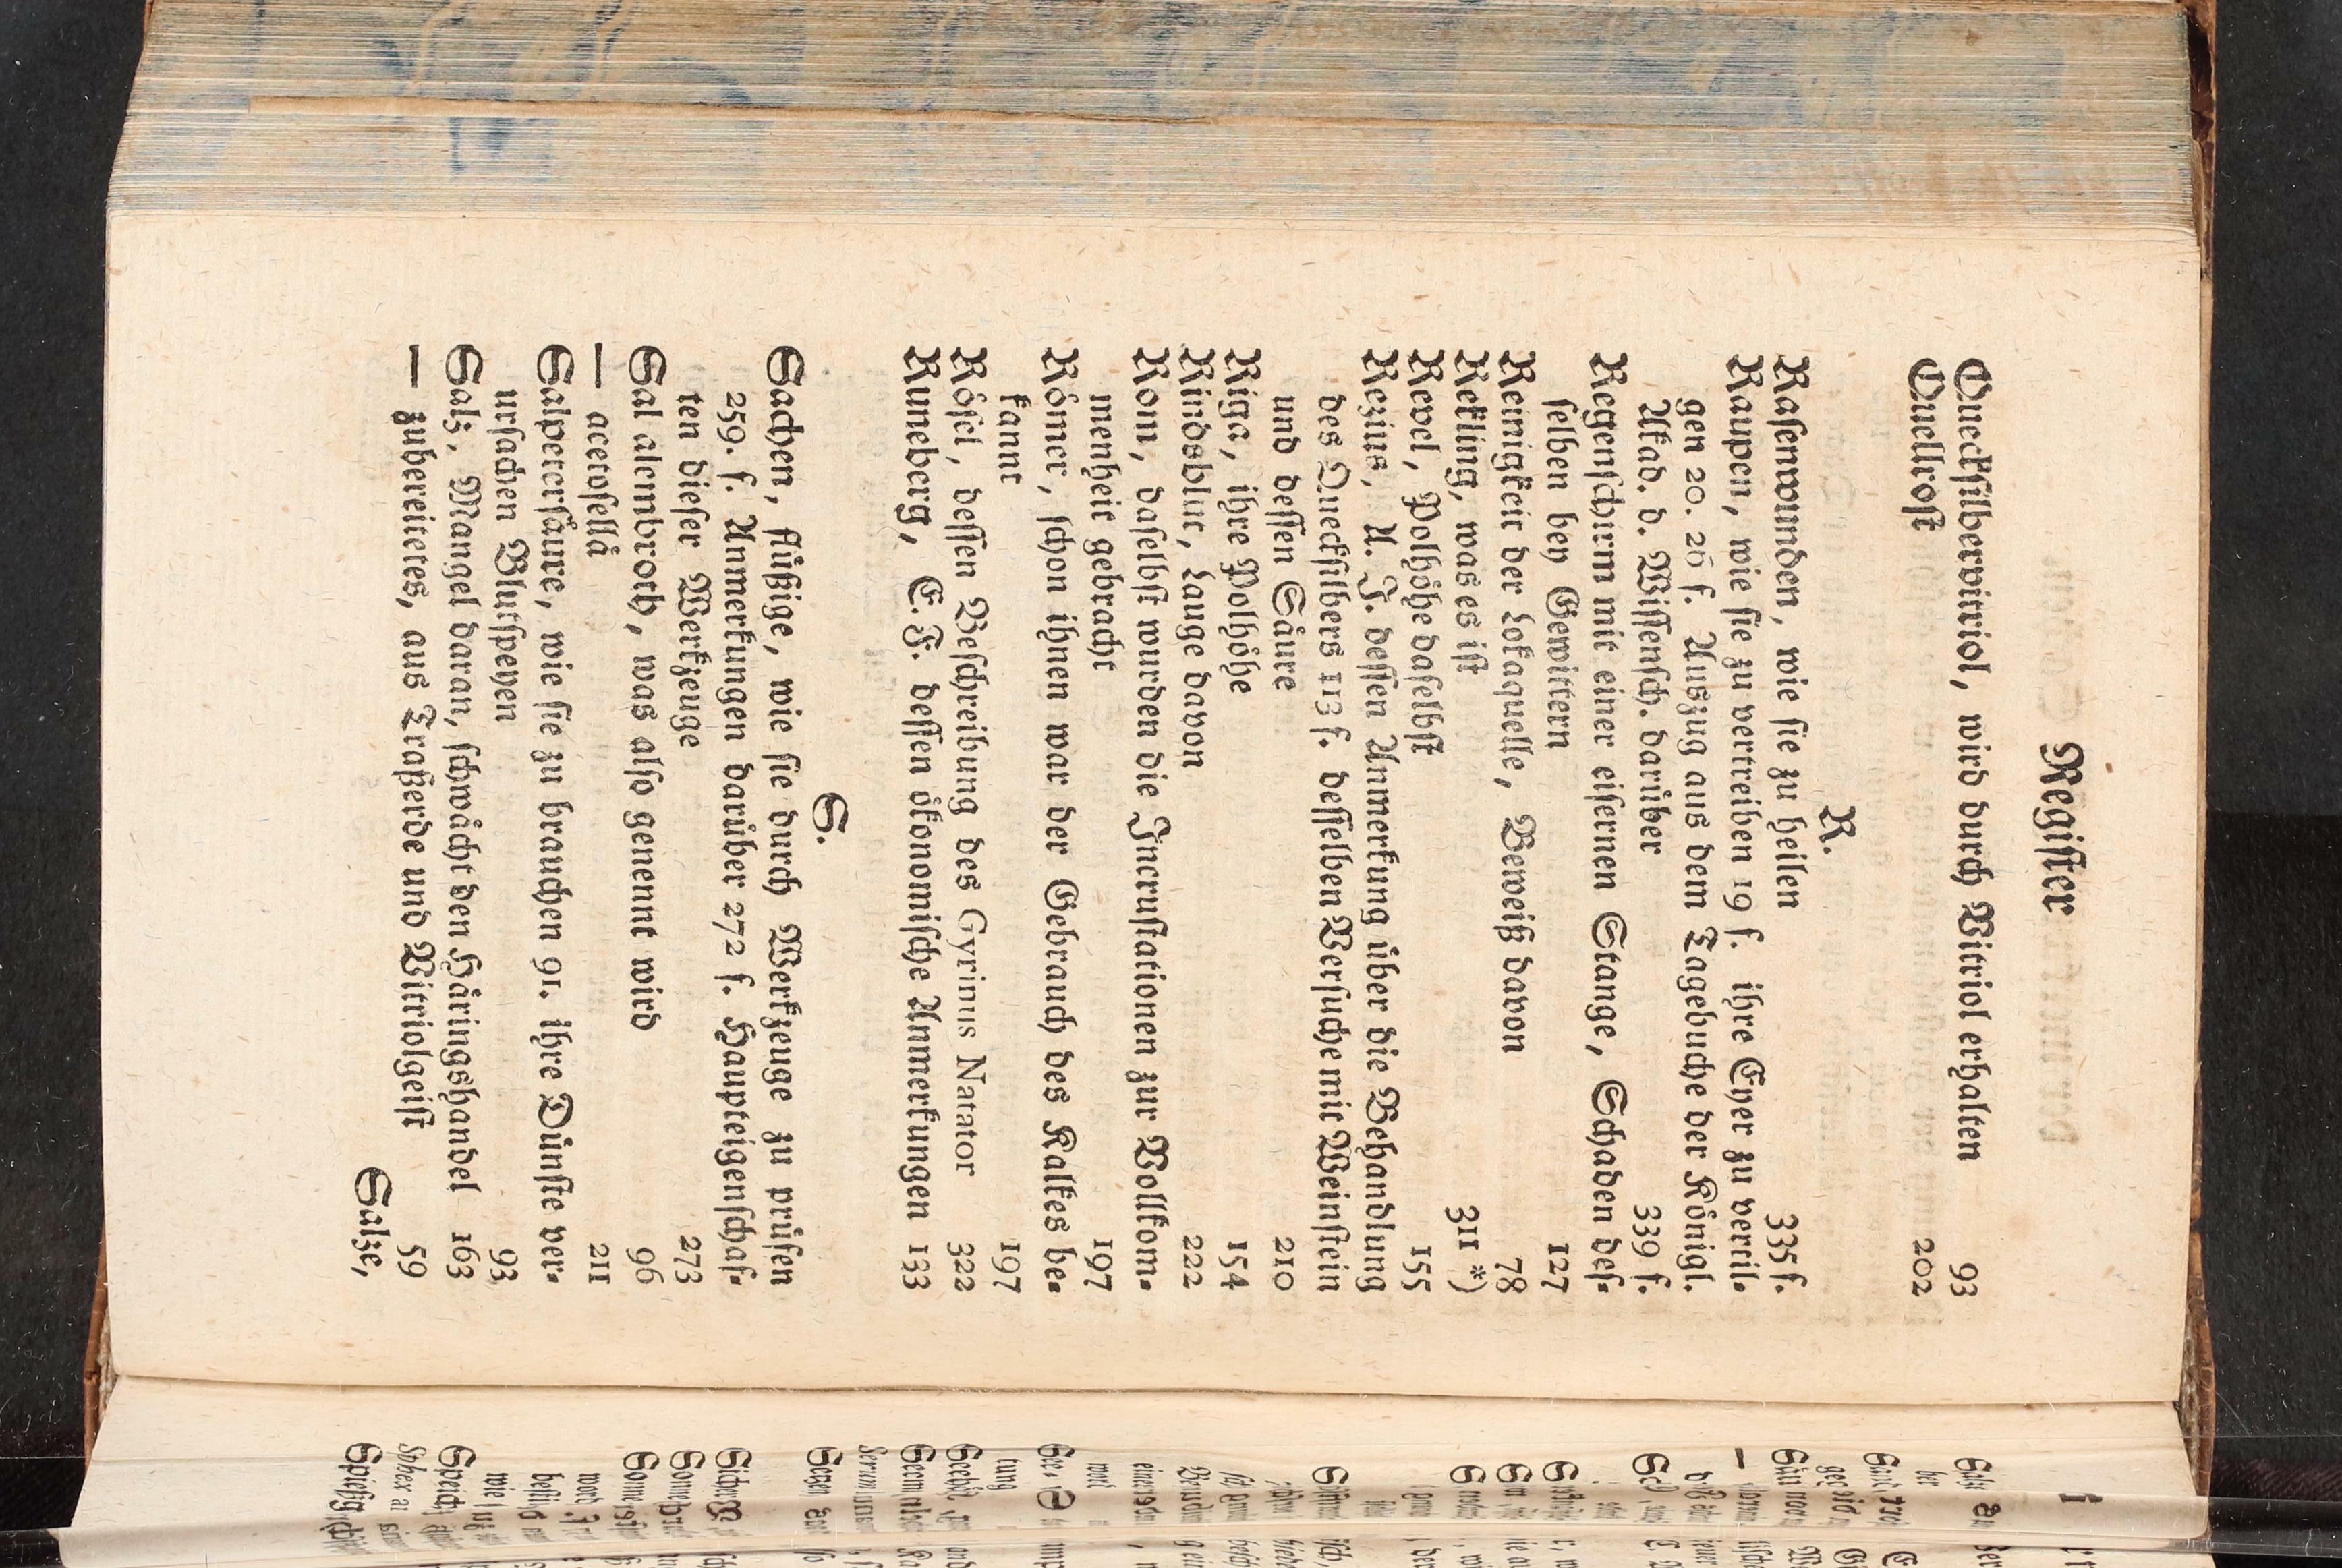 Register
Queckſilbervitriol, wird durch Vitriol erhalten 93
Quellroſt 202
R.
Raſenwunden, wie ſie zu heilen 335 f.
Raupen, wie ſie zu vertreiben 19 f. ihre Eyer zu vertil-
gen 20. 26 f. Auszug aus dem Tagebuche der Königl.
Akad. d. Wiſſenſch. darüber 339 f.
Regenſchirm mit einer eiſernen Stange, Schaden deſ-
ſelben bey Gewittern 127
Reinigkeit der Lokaquelle, Beweiß davon 78
Rekling, was es iſt 311 *)
Revel, Polhöhe daſelbſt 155
Rezius, A. J. deſſen Anmerkung über die Behandlung
des Queckſilbers 113 f. deſſelben Verſuche mit Weinſtein
und deſſen Säure 210
Riga, ihre Polhöhe 154
Rindsblut, Lauge davon 222
Rom, daſelbſt wurden die Incruſtationen zur Vollkom-
menheit gebracht 197
Römer, ſchon ihnen war der Gebrauch des Kalkes be-
kannt 197
Röſel, deſſen Beſchreibung des Gyrinus Natator 322
Runeberg, E. F. deſſen ökonomiſche Anmerkungen 133
S.
Sachen, flüßige, wie ſie durch Werkzeuge zu prüfen
259. f. Anmerkungen darüber 272 f. Haupteigenſchaf-
ten dieſer Werkzeuge 273
Sal alembroth, was alſo genennt wird 96
— acetoſellä 211
Salpeterſäure, wie ſie zu brauchen 91. ihre Dünſte ver-
urſachen Blutſpeyen 93
Salz, Mangel daran, ſchwächt den Häringshandel 163
— zubereitetes, aus Traßerde und Vitriolgeiſt 59
Salze,